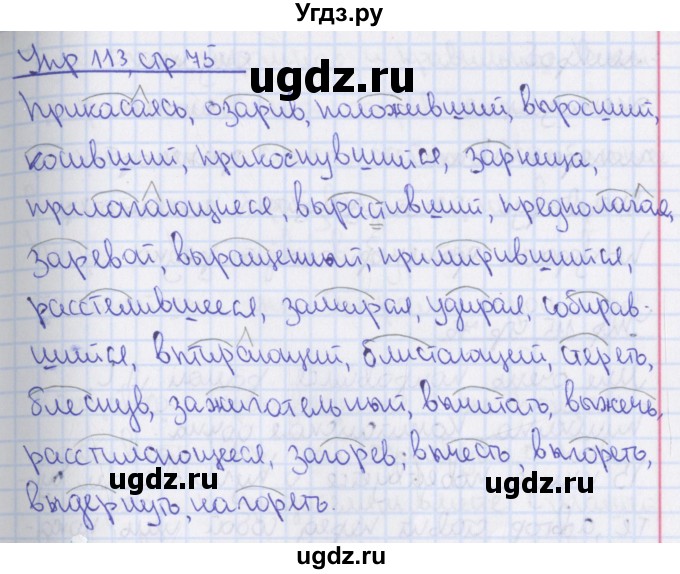 Угдз.ру
Упр 113, стр 75
ugdz.ru
Прикасаясь, озарив, положивший, выросший,
косивший, прикоснувшийся, зарница,
прилагающиеся, вырастивший, предполагая,
заревой, выращенный, примирившийся,
расстелившееся, замирая, удирая, собирав-
шийся, втирающий, блистающий, стереть,
блеснув, зажигательный, вычитать, выжечь,
расстилающееся, загорев; вычесть, выгореть,
ugdz.ru ugdz.ru
выдернуть, нагореть.
ugdz.ru